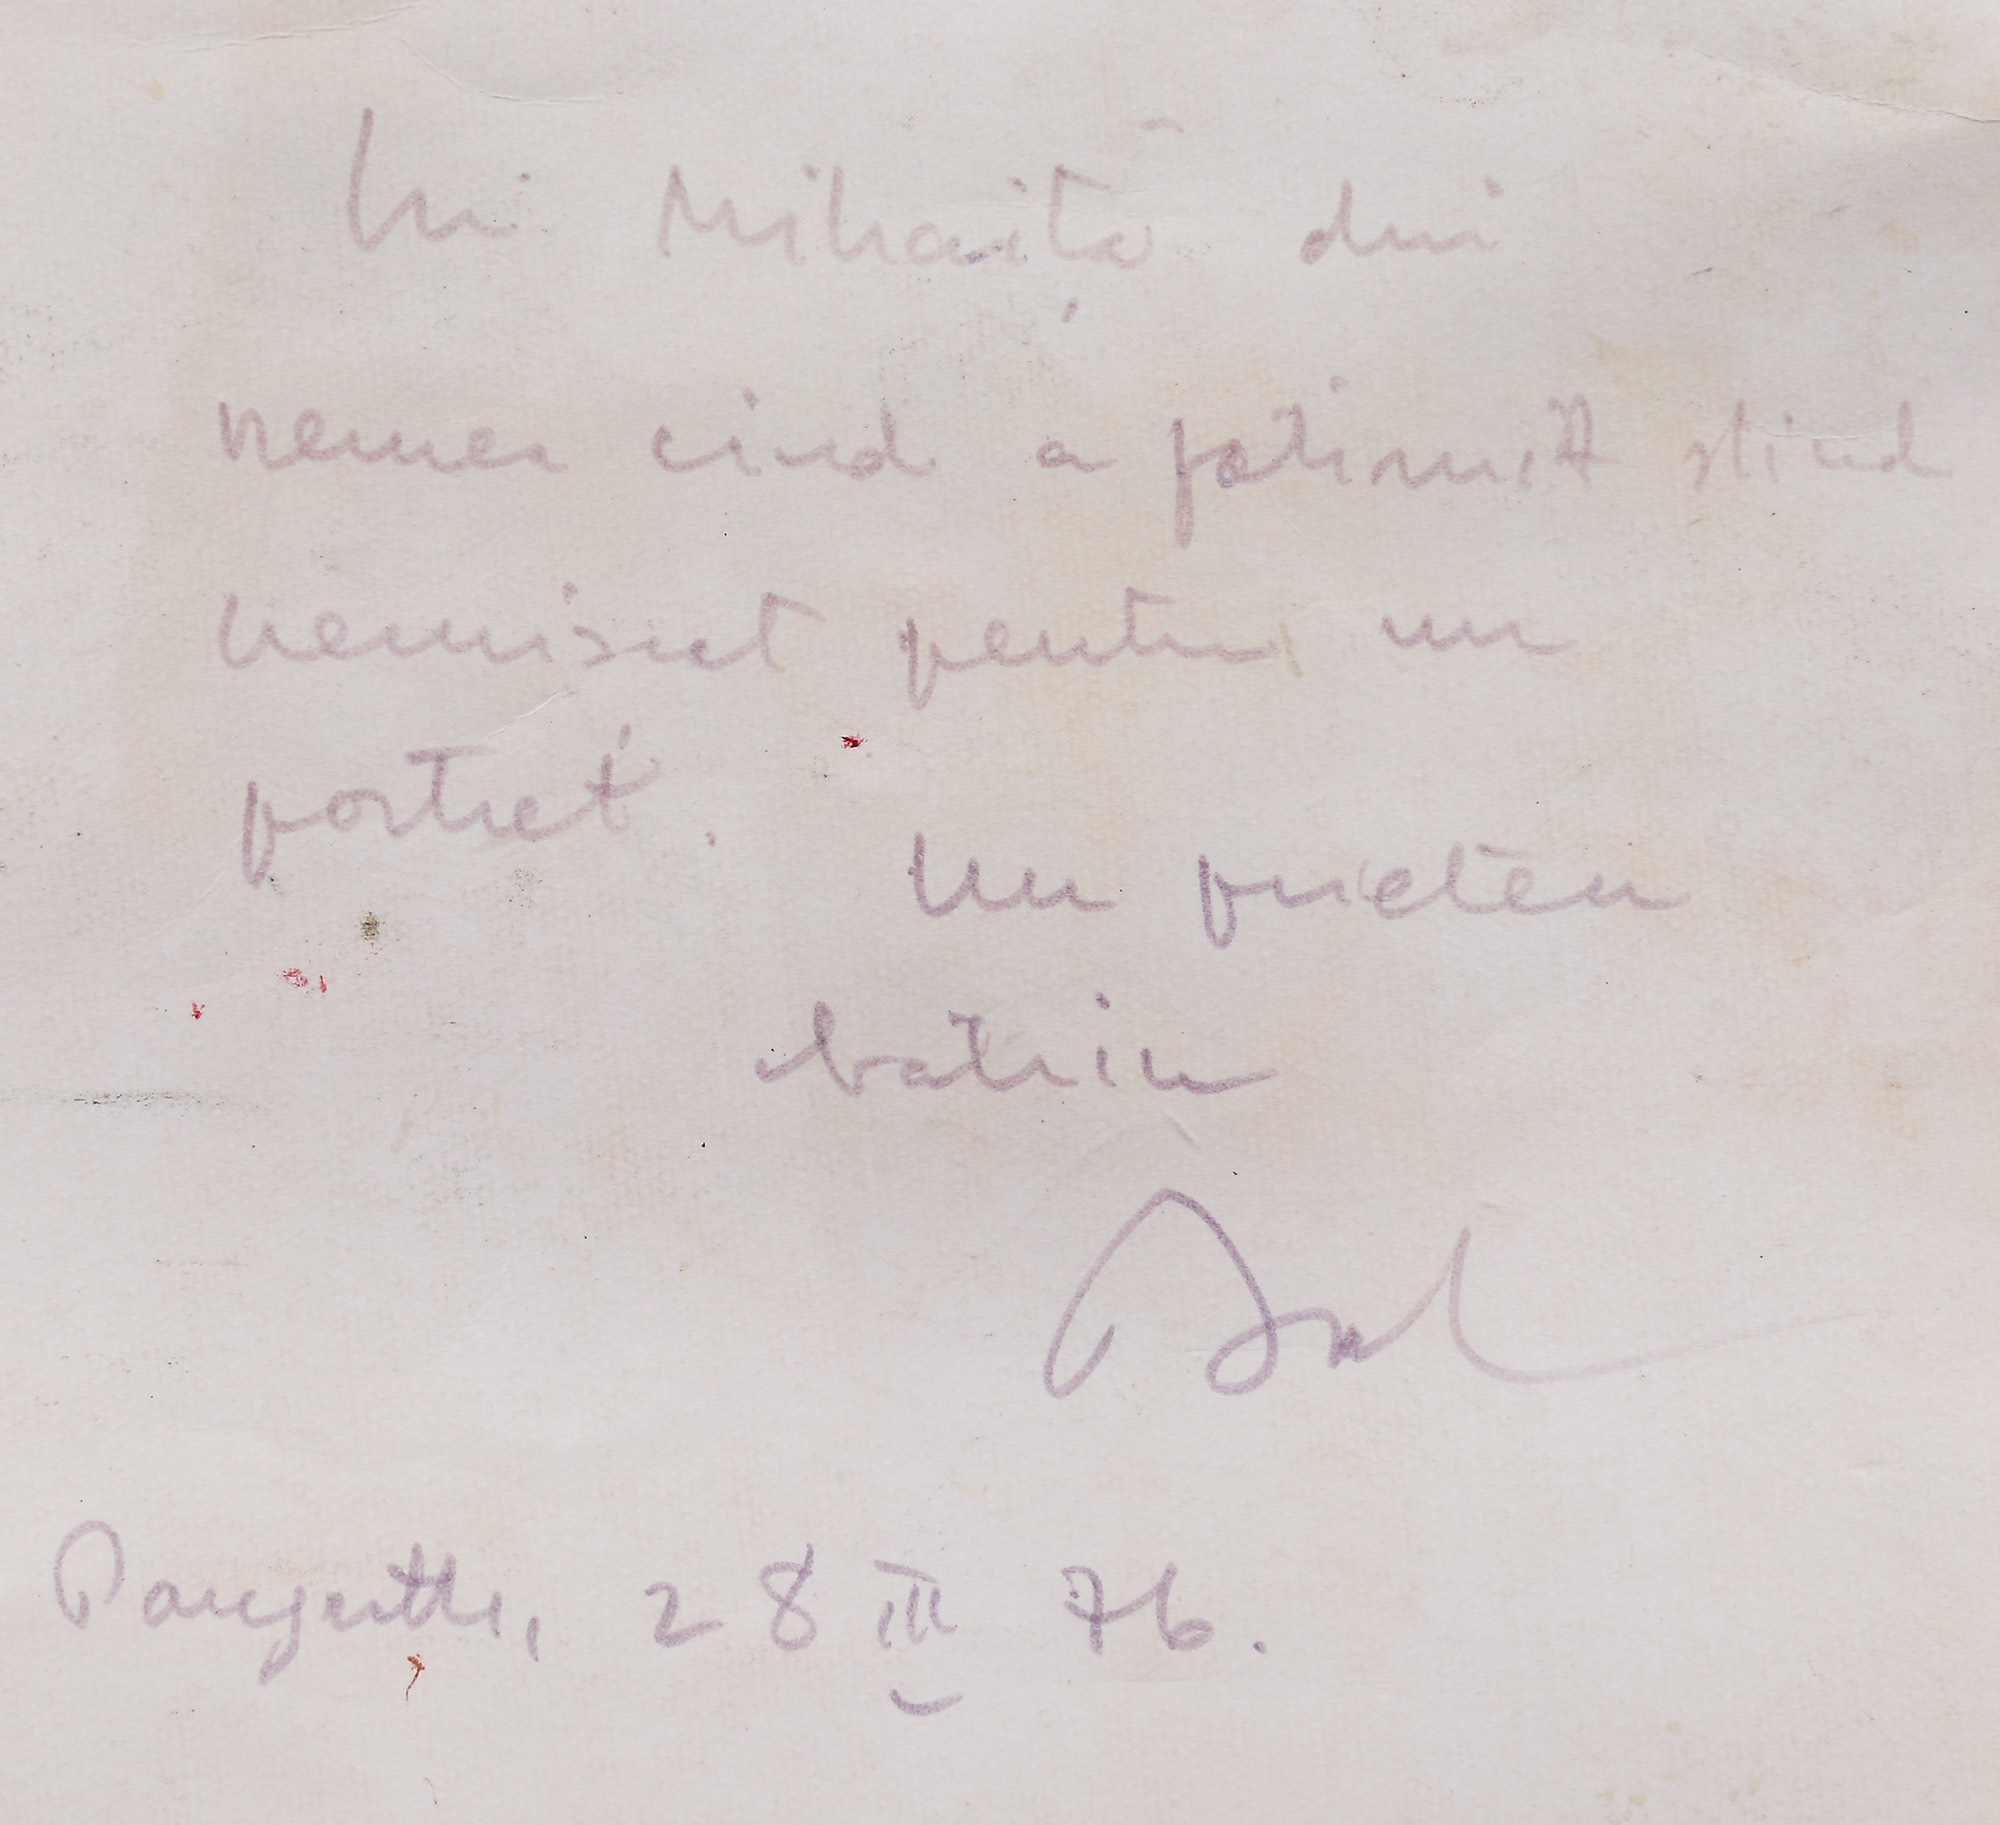 Lui Mihăiță din
vremea cînd a pătimit stînd
nemișcat pentru un
portret.
Un prieten
bătrîn
28 III 76.